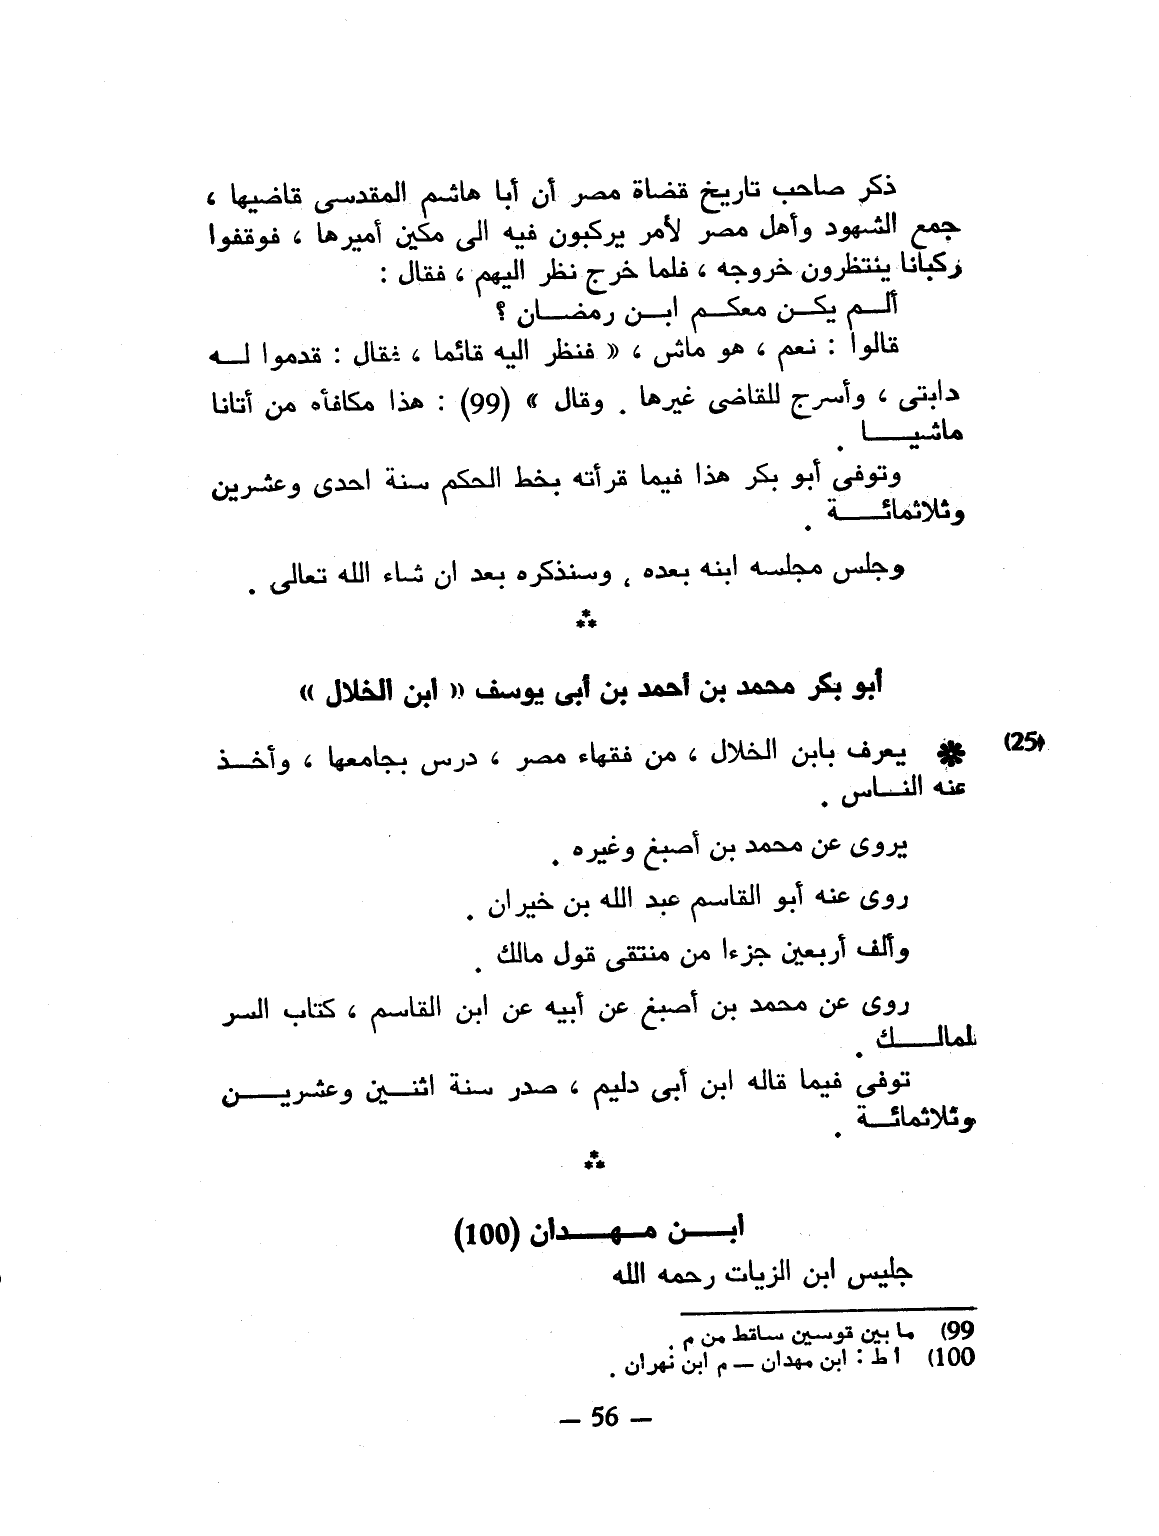 ذكر صاحب تاريخ قضاة مصر أن أبا هاشم المقدسى قاضيها ،
جمع الشهود وأهل مصر لأمر يركبون فيه الى مكين أميرها ، فوقفوا
ركبانا ينتظرون خروجه ، فلما خرج نظر اليهم ، فقال :
ألم يكن معكم ابن رمضان ؟
قالوا : نعم ، هو ماش ، « فنظر اليه قائما ، فقال : قدموا له
دابتى ، وأسرج للقاضى غيرها . وقال » (99) : هذا مكافأه من أتانا
ماشيا .
وتوفى أبو بكر هذا فيما قرأته بخط الحكم سنة احدى وعشرين
وثلاثمائة .
وجلس مجلسه ابنه بعده ، وسنذكره بعد ان شاء الله تعالى .
***
أبو بكر محمد بن أحمد بن أبى يوسف « ابن الخلال »
(25) يعرف بابن الخلال ، من فقهاء مصر ، درس بجامعها ، وأخذ
عنه الناس .
يروى عن محمد بن أصبغ وغيره .
روى عنه أبو القاسم عبد الله بن خيران .
وألف أربعين جزءا من منتقى قول مالك .
روى عن محمد بن أصبغ عن أبيه عن ابن القاسم ، كتاب السر
لمالك .
توفى فيما قاله ابن أبى دليم ، صدر سنة اثنين وعشرين
وثلاثمائة .
***
ابن مهدان (100)
جليس ابن الزيات رحمه الله
99) ما بين قوسين ساقط من م .
100) أ ط : ابن مهدان — م ابن نهران .
— 56 —